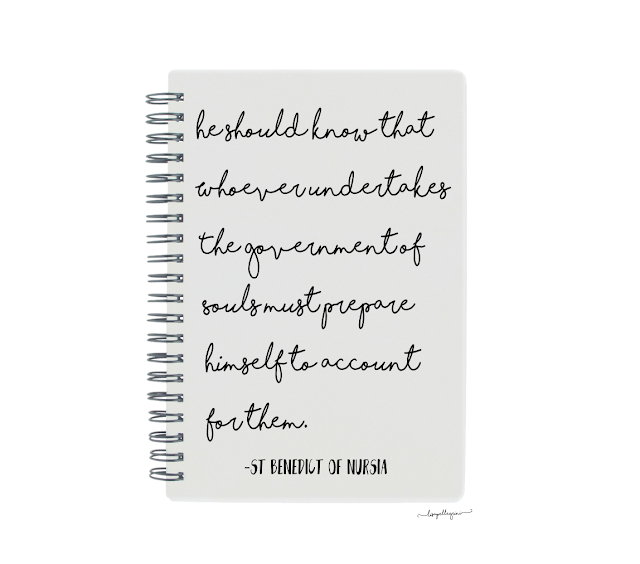 he should know that
whoever undertakes
the government of
souls must prepare
himself to account
for them.
-ST BENEDICT OF NURSIA